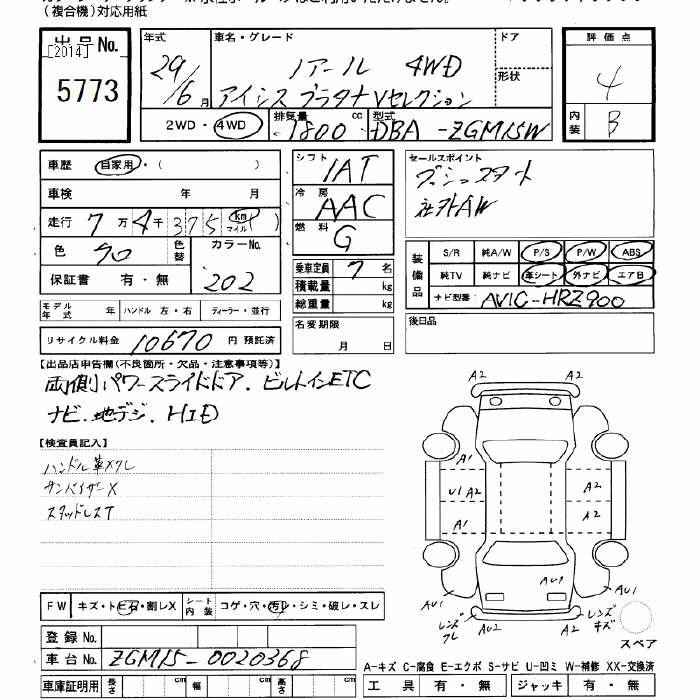 (複合機)対応用紙
出品No.
[2014]
5773
年式 29/6月
車名・グレード ノアール 4WD
アイシス プラタナ Vセレクション
ドア
形状
2WD・4WD
排気量 1800 cc
型式 DBA-ZGM15W
評価点 4
内装 B
車歴 自家用・( )
車検 年 月
走行 7万4千375 km マイル( )
色 クロ 色替
カラーNo. 202
保証書 有・無
モデル年式 年 ハンドル 左・右 ディーラー・並行
リサイクル料金 10670 円 預託済
シフト IAT
冷房 AAC
燃料 G
乗車定員 7名
積載量 kg
総重量 kg
名変期限 月 日
セールスポイント
プッシュスタート
社外AW
装備品
S/R 純A/W P/S P/W ABS
純TV 純ナビ 革シート 外ナビ エアB
ナビ型番 AVIC-HRZ900
後日品
【出品店申告欄(不良箇所・欠品・注意事項等)】
両側パワースライドドア、ビルトインETC
ナビ、地デジ、HID
【検査員記入】
ハンドル革スレ
サンバイザーX
スタッドレスT
A2
A2
A1
U1 A2
A1
A2
A2
AU1
AU1
レンズワレ
AU2
A2
レンズキズ
AU1
スペア
FW キズ・トビ石・割レX
シート内装 コゲ・穴・汚レ・シミ・破レ・スレ
登録No.
車台No. ZGM15-0020368
車庫証明用 長さ cm 幅 cm 高さ cm
A-キズ C-腐食 E-エクボ S-サビ U-凹ミ W-補修 XX-交換済
工具 有・無 ジャッキ 有・無